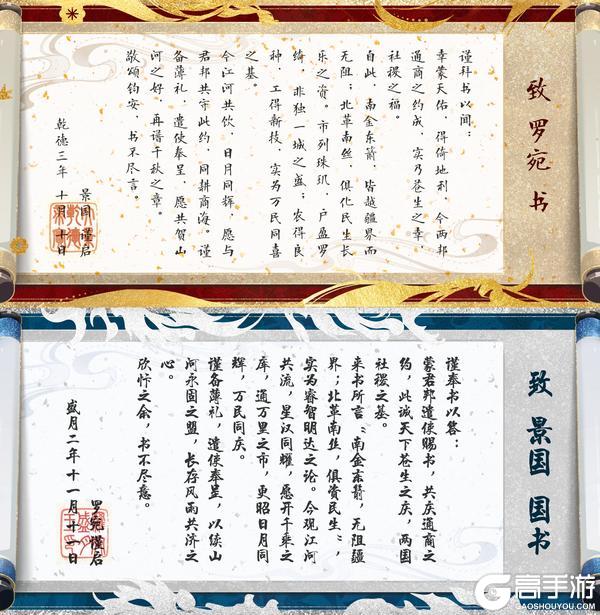 致 罗宛 书
谨拜书以闻：
幸蒙天佑，得倚地利，今两邦
通商之约成，实乃苍生之幸，
社稷之福。
自此，南金东箭，皆越疆界而
无阻；北革南丝，俱化民生长
乐之资。市列珠玑，户盈罗
绮，非独一城之盛；农得良
种，工得新技，实为万民同喜
之基。
今江河共饮，日月同辉，愿与
君邦共守此约，同耕商海。谨
备薄礼，遣使奉呈，愿共贺山
河之好，再谱千秋之章。
敬颂钧安，书不尽言。
景国 谨启
乾德三年 十月 十日
致 景国 国书
谨奉书以答：
蒙君邦遣使赐书，共庆通商之
约，此诚天下苍生之庆，两国
社稷之基。
来书所言“南金东箭，无阻疆
界；北革南丝，俱资民生”，
实为睿智明达之论。今观江河
共流，星汉同耀，愿开千乘之
库，通万里之市，更昭日月同
辉，万民同庆。
谨备薄礼，遣使奉呈，以续山
河永固之盟，长存风雨共济之
心。
欣忭之余，书不尽意。
罗宛 谨启
盛月二年十一月廿一日
高手游
GAOSHOUYOU.COM